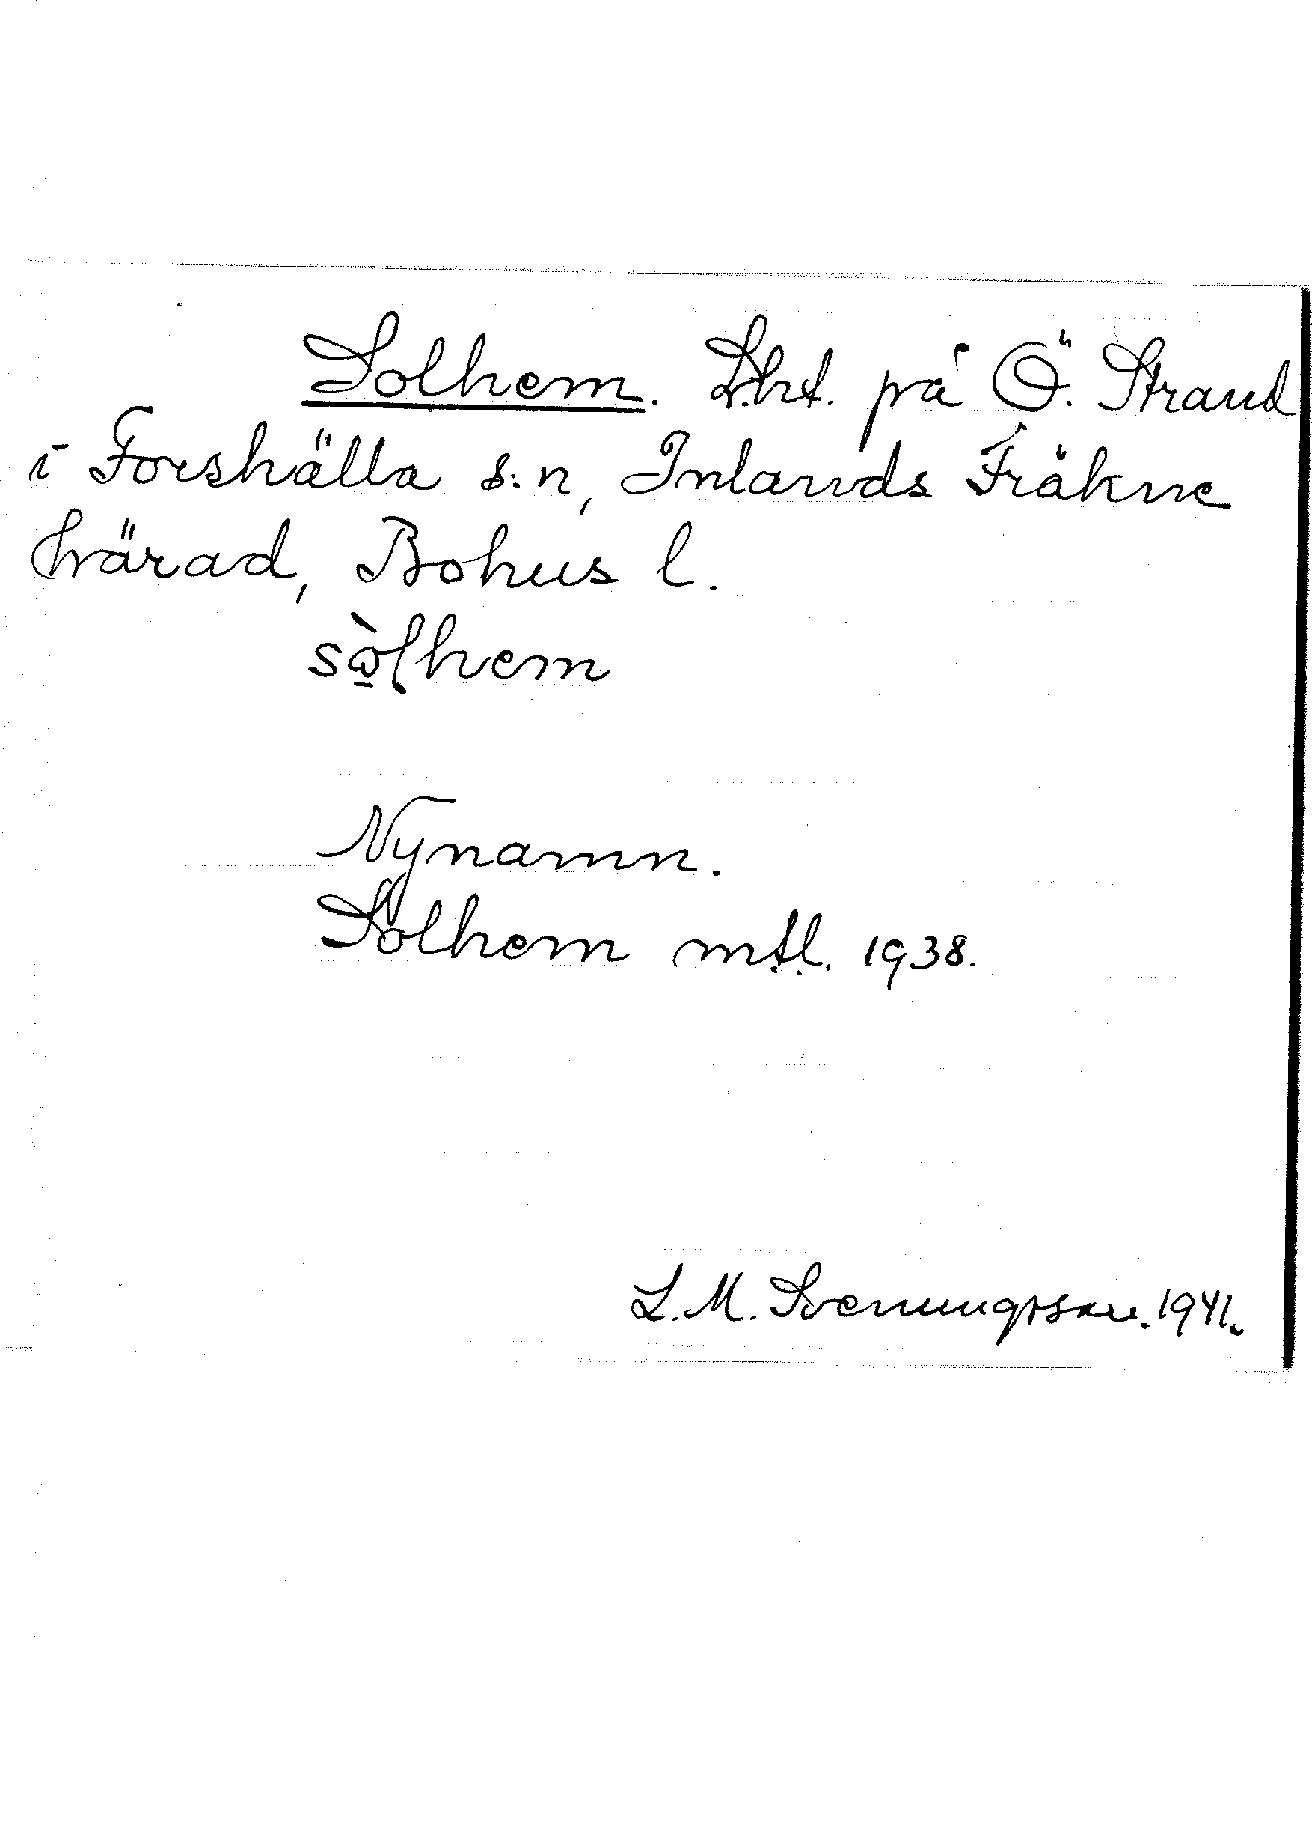 Solhem. Lht. på Ö. Strand
i Forshälla s:n, Inlands Fräkne
härad, Bohus l.
sò̱lhem
Nynamn.
Solhem mtl. 1938.
L. M. Svenungsson. 1941.